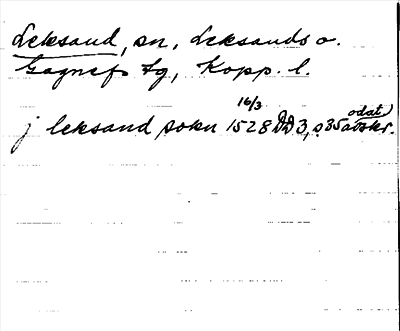 Leksand, sn, Leksands o.
Gagnefs tg, Kopp. l.
j leksand sokn 16/3 1528 DD 3, s. 35 odat. avskr.